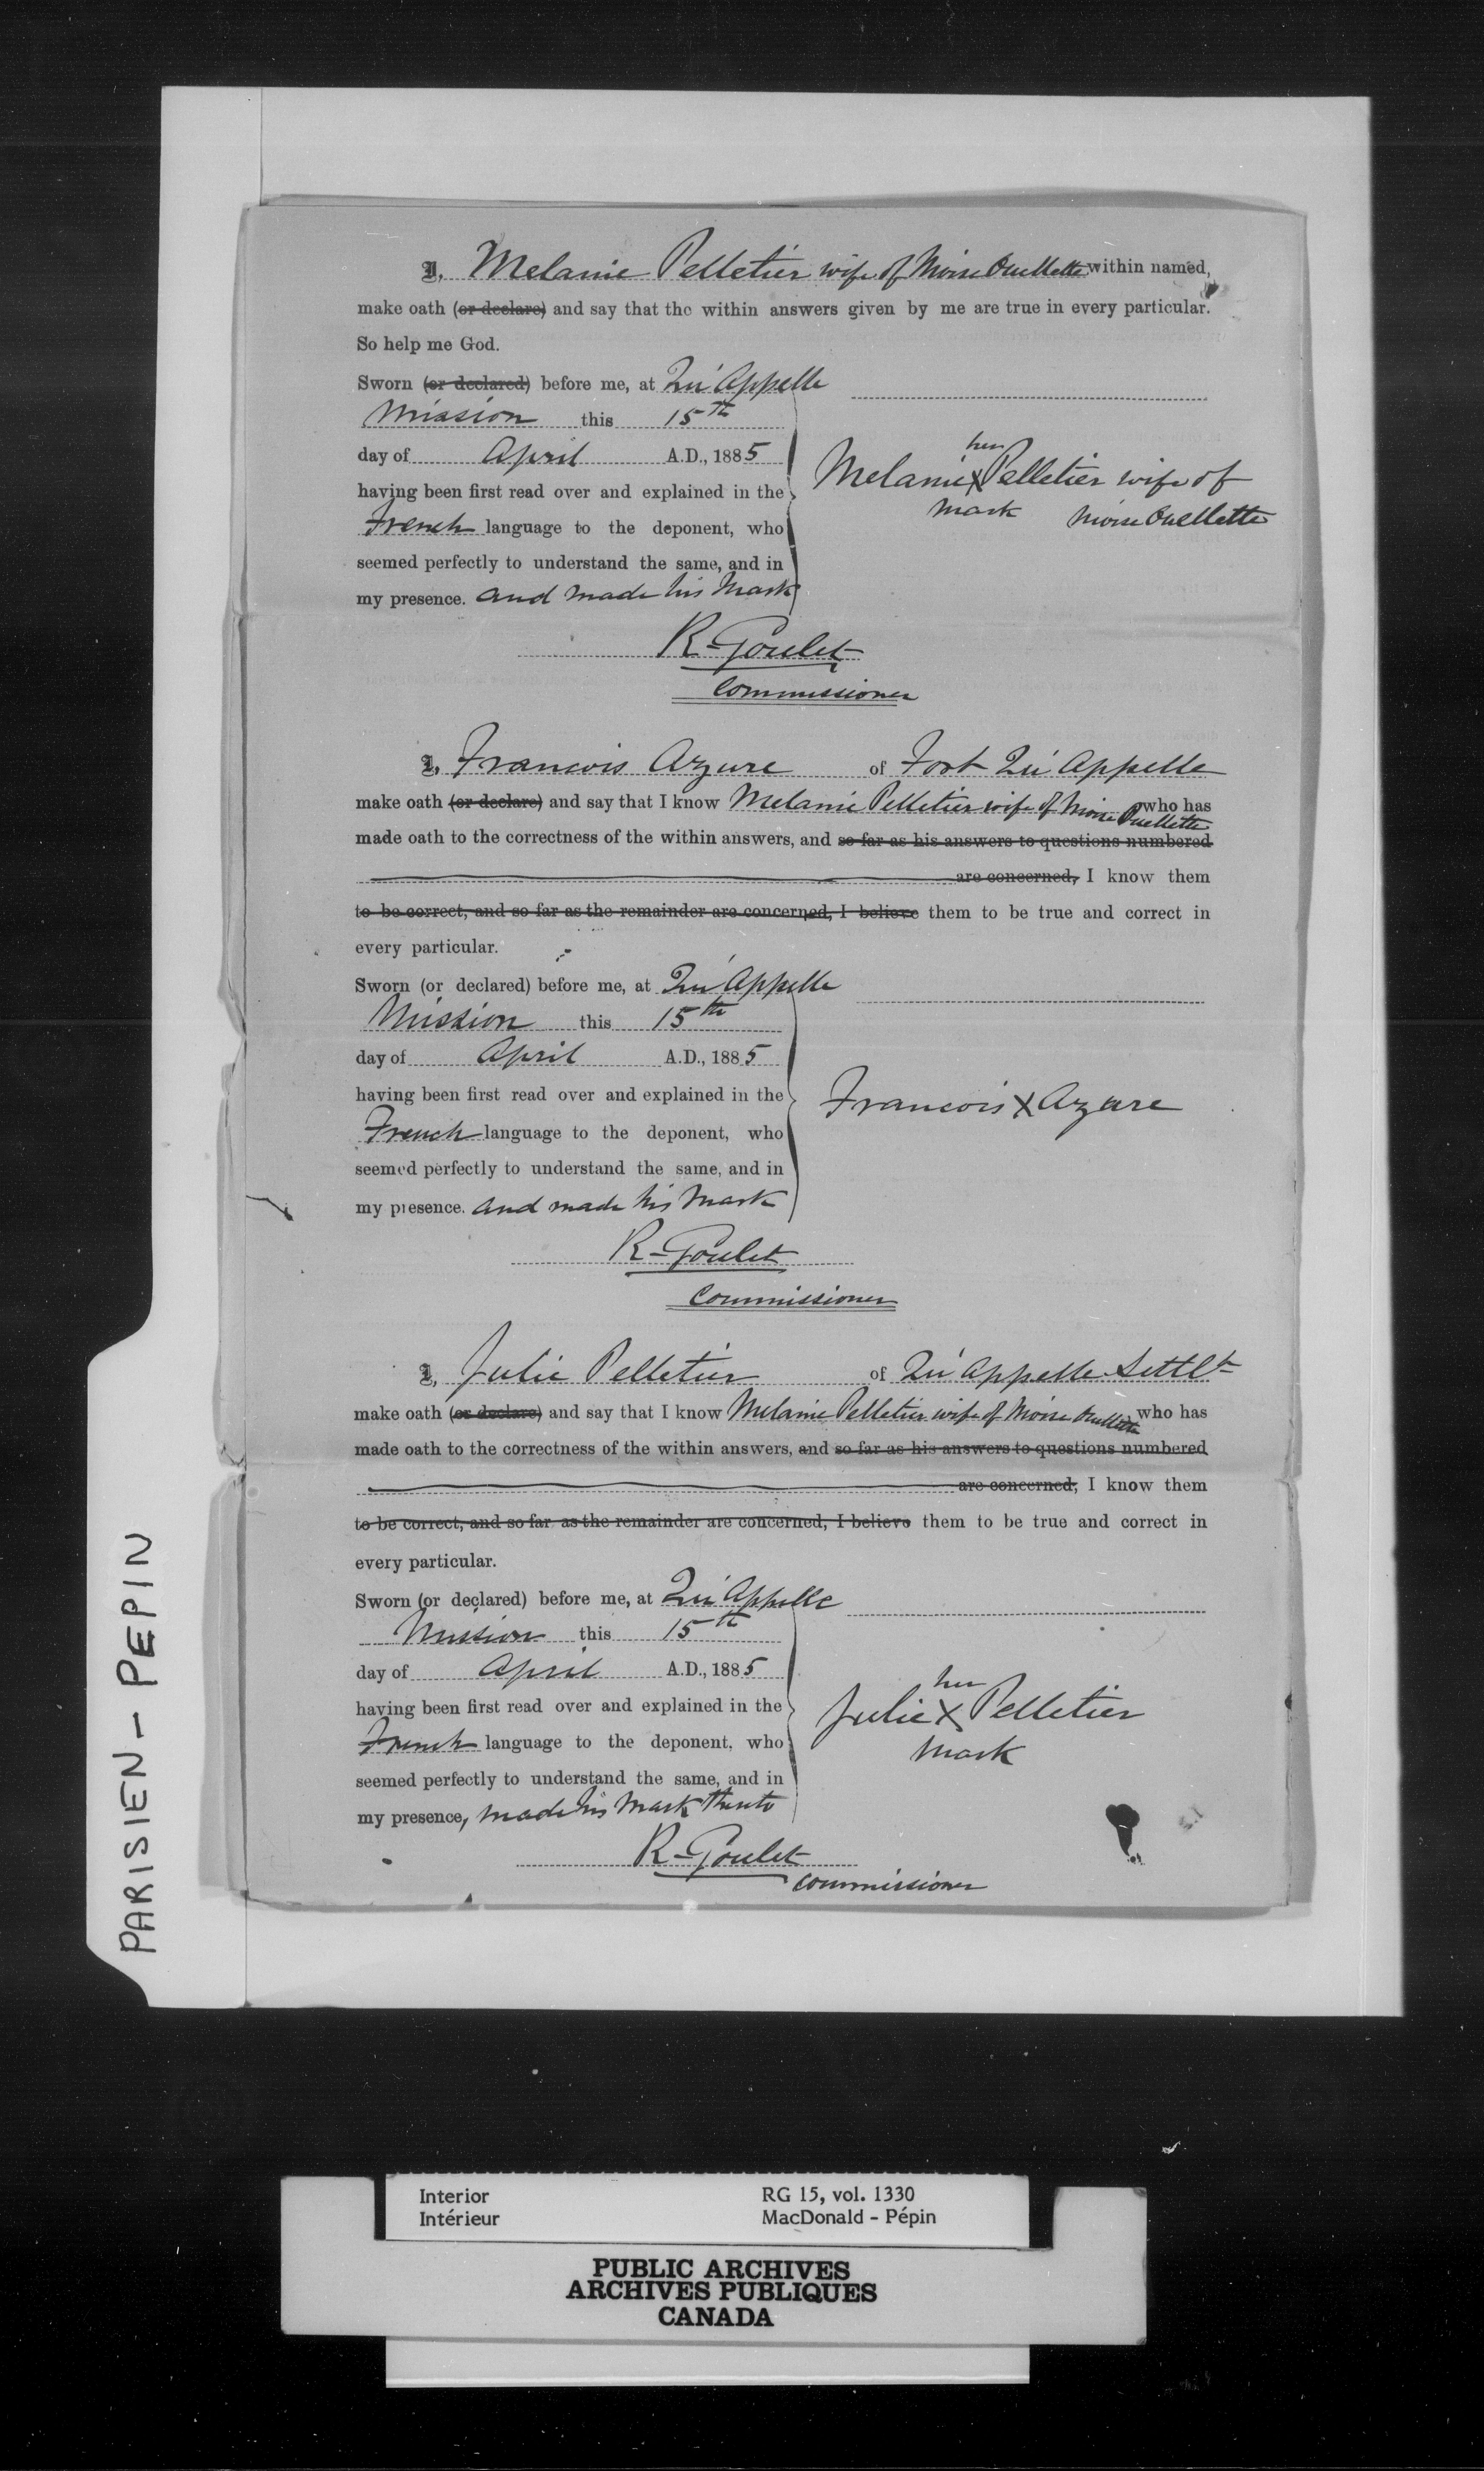 I, Melanie Pelletier wife of Moise Ouellette within named,
make oath (or declare) and say that the within answers given by me are true in every particular.
So help me God.
Sworn (or declared) before me, at Qu'Appelle
Mission this 15th
day of April A.D., 1885
having been first read over and explained in the
French language to the deponent, who
seemed perfectly to understand the same, and in
my presence. and made his mark
her
Melanie X Pelletier wife of
mark Moise Ouellette
R. Goulet
Commissioner
I, Francois Azure of Fort Qu'Appelle
make oath (or declare) and say that I know Melanie Pelletier wife of Moise Ouellette who has
made oath to the correctness of the within answers, and so far as his answers to questions numbered
are concerned, I know them
to be correct, and so far as the remainder are concerned, I believe them to be true and correct in
every particular.
Sworn (or declared) before me, at Qu'Appelle
Mission this 15th
day of April A.D., 1885
having been first read over and explained in the
French language to the deponent, who
seemed perfectly to understand the same, and in
my presence. and made his mark
Francois X Azure
R. Goulet
Commissioner
I, Julie Pelletier of Qu'Appelle Settlt
make oath (or declare) and say that I know Melanie Pelletier wife of Moise Ouellette who has
made oath to the correctness of the within answers, and so far as his answers to questions numbered
are concerned, I know them
to be correct, and so far as the remainder are concerned, I believe them to be true and correct in
every particular.
Sworn (or declared) before me, at Qu'Appelle
Mission this 15th
day of April A.D., 1885
having been first read over and explained in the
French language to the deponent, who
seemed perfectly to understand the same, and in
my presence, made his mark thereto
her
Julie X Pelletier
mark
R. Goulet
Commissioner
PARISIEN - PEPIN
Interior RG 15, vol. 1330
Intérieur MacDonald - Pépin
PUBLIC ARCHIVES
ARCHIVES PUBLIQUES
CANADA